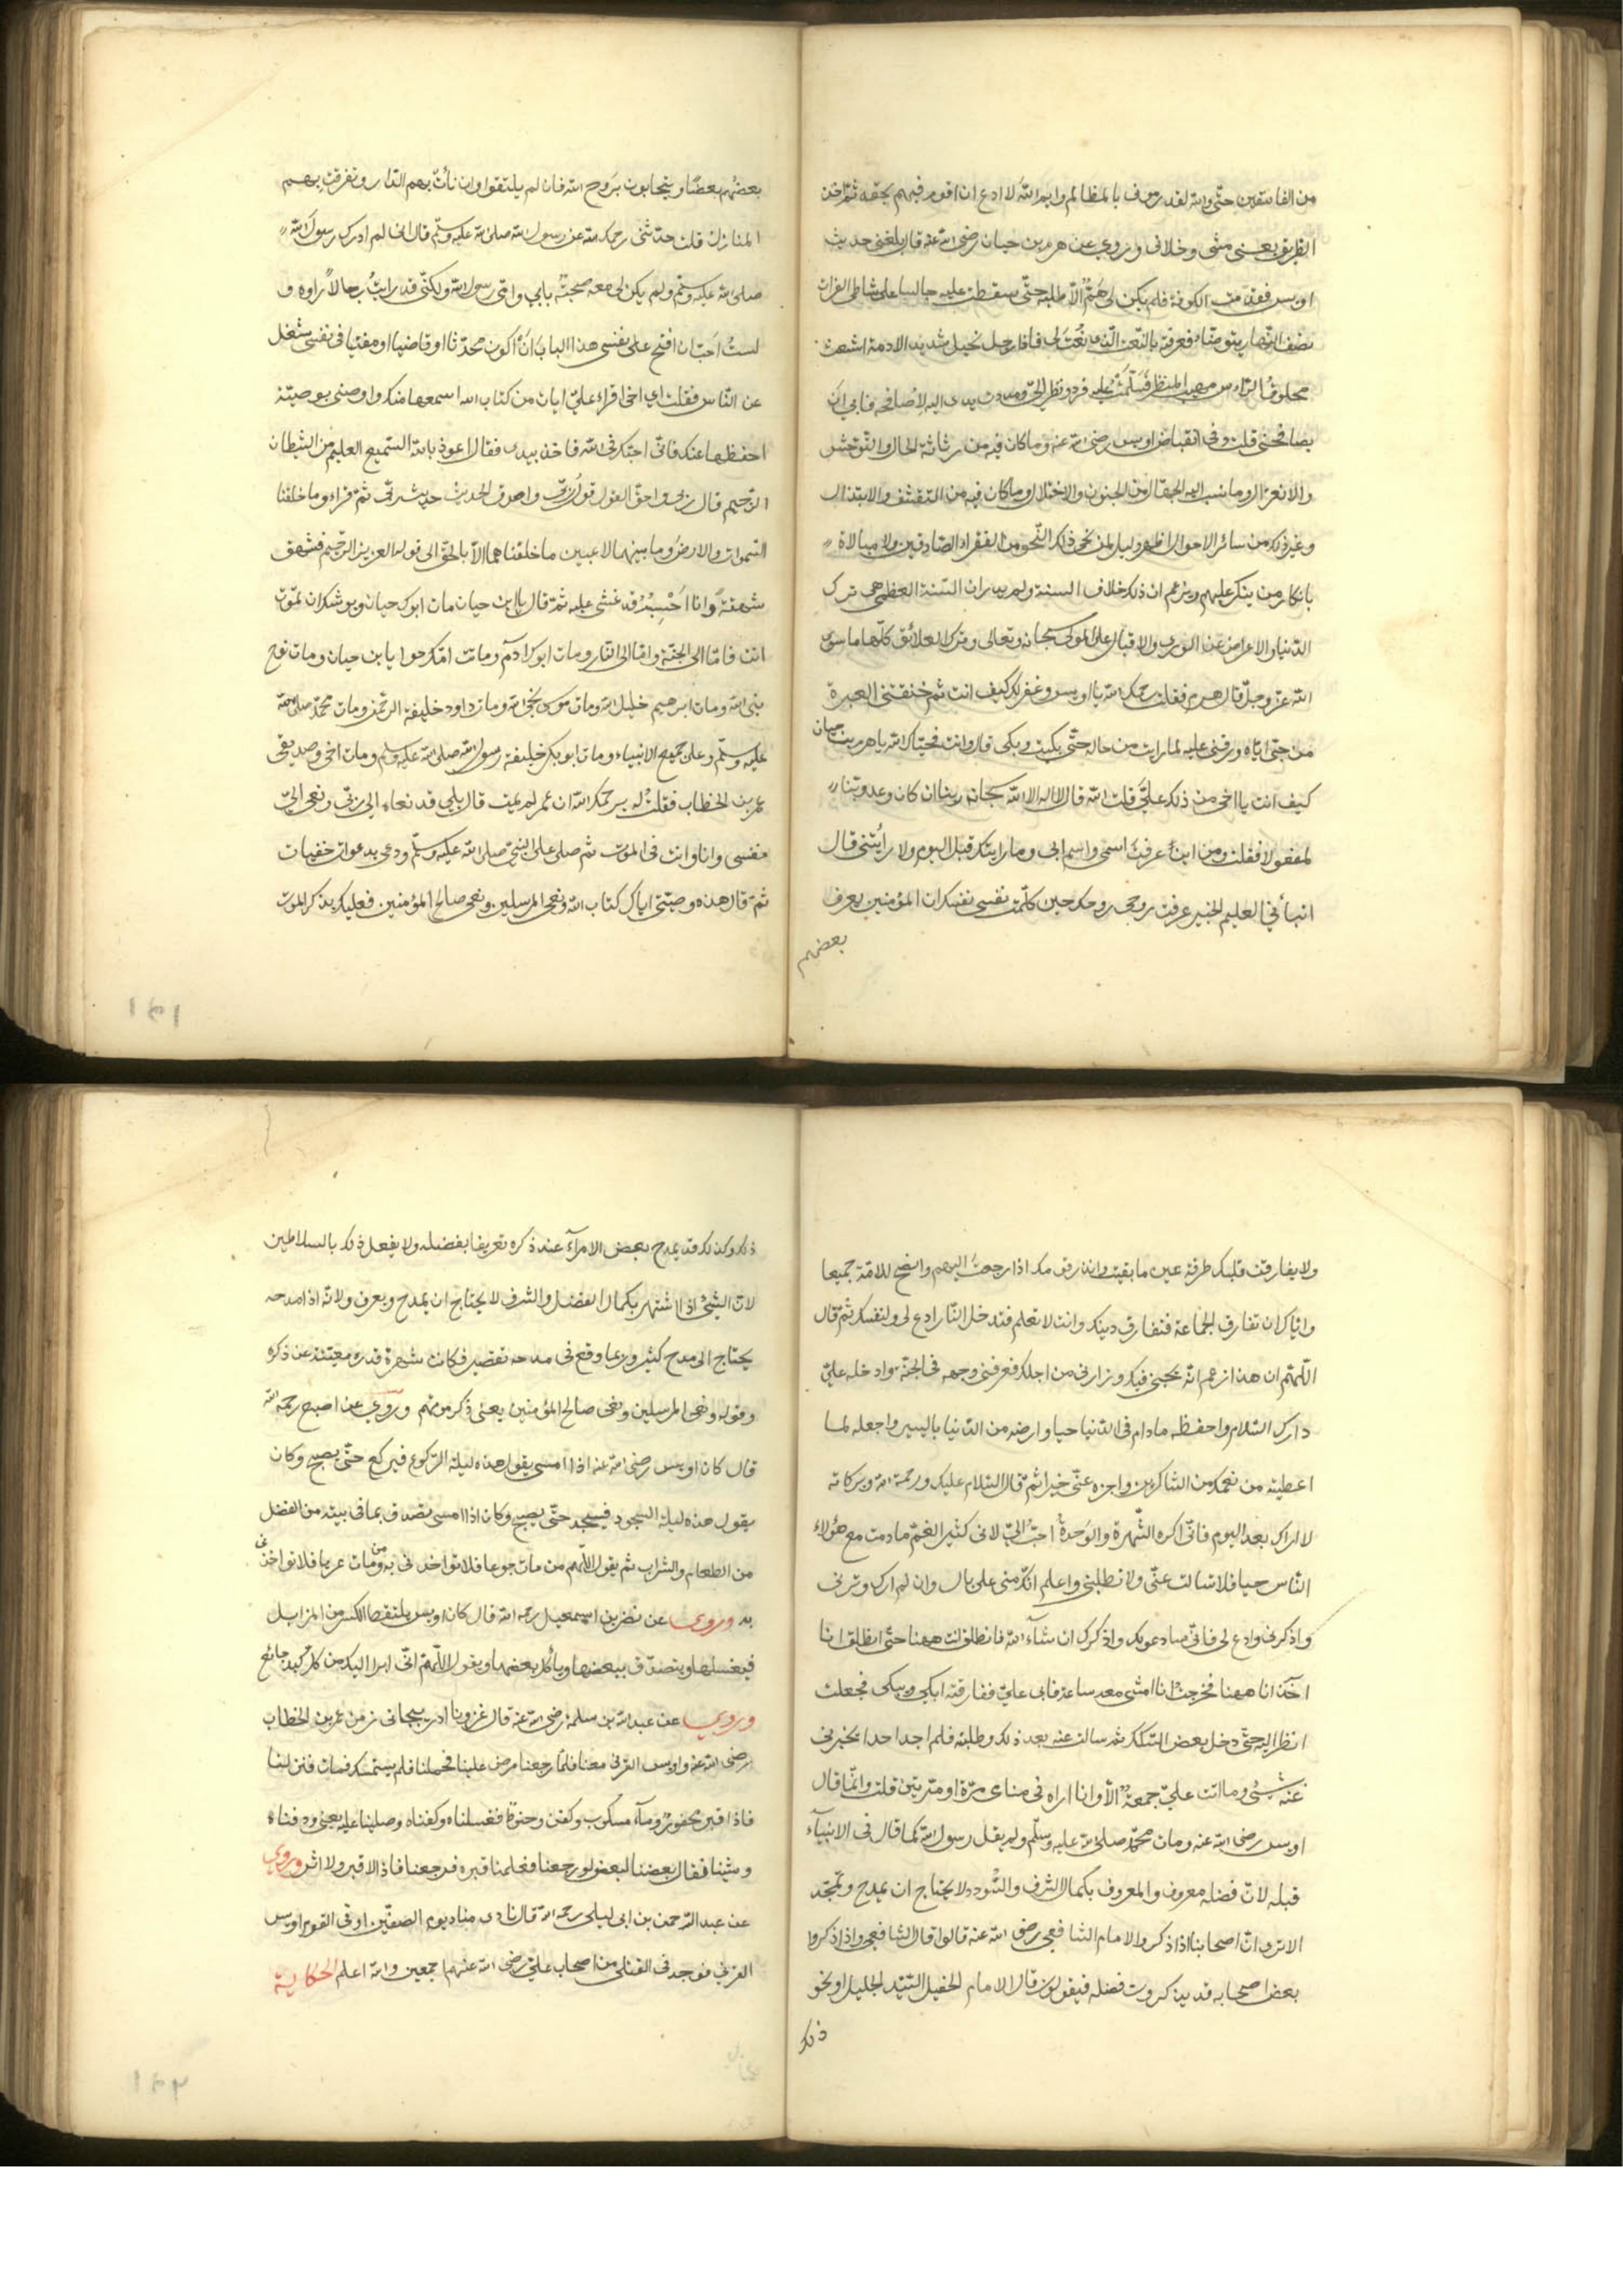 من الفاسقين حتّى والله لقد رموني بالمظالم وايم الله لا ادع ان اقوم فيهم بحقه ثمّ اخذ
الطريق يعني مشى وخلاني وروي عن هرم بن حيان رضى الله عنه قال بلغني حديث
اويس فقدمت الكوفة فلم يكن لى هَمٌّ الّا طلبه حتّى سقطت عليه جالسا على شاطى الفرات
نصف النّهار يتوضّاء فعرفته بالنّعت الّذى نُعت لى فاذا رجل نحيل شديد الادمة اشعث
محلوق الراس مهيب المنظر فسَلّمتُ عليه فرد ونظر الىّ ومددت يدى اليه لاُصافحه فابى ان
يصافحنى قلت وفى انقباض اويس رضى الله عنه وما كان فيه من رثاثة الحال والتوحّش
والانعزال وما نسب اليه الجهّال من الجنون والاختلال وما كان فيه من التقشّف والابتذال
وغير ذلك من سائر الاحوال اظهر دليل لمن نحى ذلك النّحو من الفقراء الصّادقين ولا مبالاة
بانكار من ينكر عليهم ويزعم ان ذلك خلاف السنة ولم يدر ان السّنة العظمى هى ترك
الدّنيا والاعراض عن الورى والاقبال على المولى سبحانه وتعالى وترك العلائق كلّها ما سوى
الله عزّ وجلّ قال هرم فقلت رحمك الله يا اويس وغفر لك كيف انت ثم خنقتنى العبرة
من حبّى ايّاه ورقتى عليه لما رايت من حاله حتّى بكيت وبكى قال وانت فحيّاك الله يا هرم بن حيان
كيف انت يا اخى من ذلك علىّ قلت الله قال لا اله الا الله سبحانه ربنا ان كان وعد ربنا
لمفعولا فقلت ومن اين عرفت اسمى واسم ابى وما رايتك قبل اليوم ولا رأيتنى قال
انبأني العليم الخبير عرفت روحى روحك حين كلّمت نفسى نفسك ان المؤمنين يعرف
بعضهم
بعضُهم بعضًا ويتحابون بروح الله فان لم يلتقوا وان نأت بهم الدّار وتفرقت بهم
المنازل قلت حدّثنى رحمك الله عن رسول الله صلى الله عليه وسلّم قال انى لم ادرك رسول الله
صلى الله عليه وسلّم ولم يكن لى معه صحبةٌ بابى وامّى رسول الله ولكنّى قد رايتُ رجالاً راوه و
لستُ اَحبّ ان افتح على نفسى هذا الباب اَنْ اكون محدّثا او قاضيا او مفتيا فى نفسى شغل
عن النّاس فقلت اي اخى اقراء علىّ ايات من كتاب الله اسمعها منك واوصنى بوصيّة
احفظها عنك فانّى احبّك فى الله فاخذ بيدى فقال اعوذ بالله السّميع العليم من الشيطان
الرّجيم قال ربى واحقّ القول قول ربّى واصدق الحديث حديث ربّى ثمّ قراء وما خلقنا
السّموات والارض وما بينهما لاعبين ما خلقناهما الّا بالحقّ الى قوله العزيز الرّحيم فشهق
شهقةً وانا اَحْسِبُهُ قد غشى عليه ثمّ قال يا ابن حيان مات ابوك حيان ويوشك ان تموت
انت فامّا الى الجنّة وامّا الى النار ومات ابوك آدم وماتت امّك حوا يا ابن حيان ومات نوح
نبى الله ومات ابرهيم خليل الله ومات موسى نجى الله ومات داود خليفة الرحمن ومات محمّد صلى الله
عليه وسلّم وعلى جميع الانبياء ومات ابوبكر خليفة رسول الله صلى الله عليه وسلم ومات اخى وصديقى
عمر بن الخطاب فقلتُ له يرحمك الله ان عمر لم يمت قال بلى قد نعاه الى ربّى ونعى الىّ
نفسى وانا وانت فى الموت ثم صلى على النبىّ صلى الله عليه وسلّم ودعى بدعوات خفيات
ثمّ قال هذه وصيّتى اياك كتاب الله ونعى المرسلين ونعى صالح المؤمنين فعليك بذكر الموت
ولا يفارقنّ قلبك طرفة عين ما بقيت وانذر قومك اذا رجعت اليهم وانصح للامّة جميعا
وايّاك ان تفارق الجماعة فتفارق دينك وانت لا تعلم فتدخل النّار ادع لى ولنفسك ثمّ قال
اللّهمّ ان هذا زعم انّه يحبنى فيك وزارنى من اجلك فعرفنى وجهه فى الجنّة وادخله علىّ
دارك السّلام واحفظه ما دام فى الدّنيا حيا وارضه من الدّنيا باليسير واجعله لما
اعطيته من نعمك من الشاكرين واجزه عنّى خيرا ثم قال السّلام عليك ورحمة الله وبركاته
لا اراك بعد اليوم فانّى اكره الشّهرة والوَحدةُ احبّ الىّ لانى كثير الغمّ ما دمت مع هؤلاء
النّاس حيا فلا تسالت عنّى ولا تطلبنى واعلم انّك منى على بال وان لم ارك وترنى
واذكرنى وادع لى فانّى سادعو لك واذكرك ان شاء الله فانطلق انت ههنا حتى انطلق انا
اخذ انا ههنا فخرجت انا امشى معه ساعة فابى علىّ ففارقته ابكى ويبكى فجعلت
انظر اليه حتّى دخل بعض السّكك ثمّ سالت عنه بعد ذلك وطلبته فلم اجد احدا يخبرنى
عنه بشئ وما اتت علىّ جمعةٌ الّا وانا اراه فى منامى مرّة او مرّتين قلت وانّما قال
اويس رضى الله عنه ومات محمّد صلى الله عليه وسلّم ولم يقل رسول الله كما قال فى الانبيآء
قبله لانّ فضله معروف والمعروف بكمال الشرف والسّودد لا يحتاج ان يمدح ويمجّد
الا ترى انّ اصحابنا اذا ذكروا الامام الشافعى رضى الله عنه قالوا قال الشافعى واذا ذكروا
بعض اصحابه قد يذكرون فضله فيقولون قال الامام الحفيل السّيّد الجليل او نحو
ذلك
ذلك وكذلك قد يمدح بعض الامرآء عند ذكره تعريفا بفضله ولا يفعل ذلك بالسلاطين
لانّ الشئ اذا اشتهر بكمال الفضل والشرف لا يحتاج ان يمدح ويعرف ولانّه اذا مدحه
يحتاج الى مدح كثير وربما وقع فى مدحه تقصير فكانت شهرة قدره مغنية عن ذكره
وقوله ونعى المرسلين ونعى صالح المؤمنين يعنى ذكر موتهم وروي عن اصبح رحمه الله
قال كان اويس رضى الله عنه اذا امسى يقول هذه ليلة الرّكوع فيركع حتّى يصبح وكان
يقول هذه ليلة السجود فيسجد حتّى يصبح وكان اذا امسى تصدق بما فى بيته من الفضل
من الطعام والشراب ثم يقول اللّهم من مات جوعا فلا تؤاخذنى به ومن مات عريا فلا تؤاخذنى
به وروى عن نضر بن اسمعيل رحمه الله قال كان اويس يلتقط الكسر من المزابل
فيغسلها ويتصدّق ببعضها وياكل بعضها ويقول اللّهمّ انّى ابرا اليك من كل كبد جائع
وروي عن عبد الله بن سلمة رضى الله عنه قال غزونا اذربيجانى زمن عمر بن الخطاب
رضى الله عنه واويس القرنى معنا فلمّا رجعنا مرض علينا فحملنا فلم يستمسك فمات فنزلنا
فاذا قبر محفور ومآء مسكوب وكفن وحنوط فغسلناه وكفنّاه وصلينا عليه يعنى ودفناه
ومشينا فقال بعضنا لبعض لو رجعنا فعلمنا قبره فرجعنا فاذا لا قبر ولا اثر وروي
عن عبد الرّحمن بن ابى ليلى رحمه الله قال نادى مناد يوم الصفّين افى القوم اويس
القرنى فوجد فى القتلى من اصحاب علىّ رضى الله عنهم اجمعين والله اعلم الحكاية